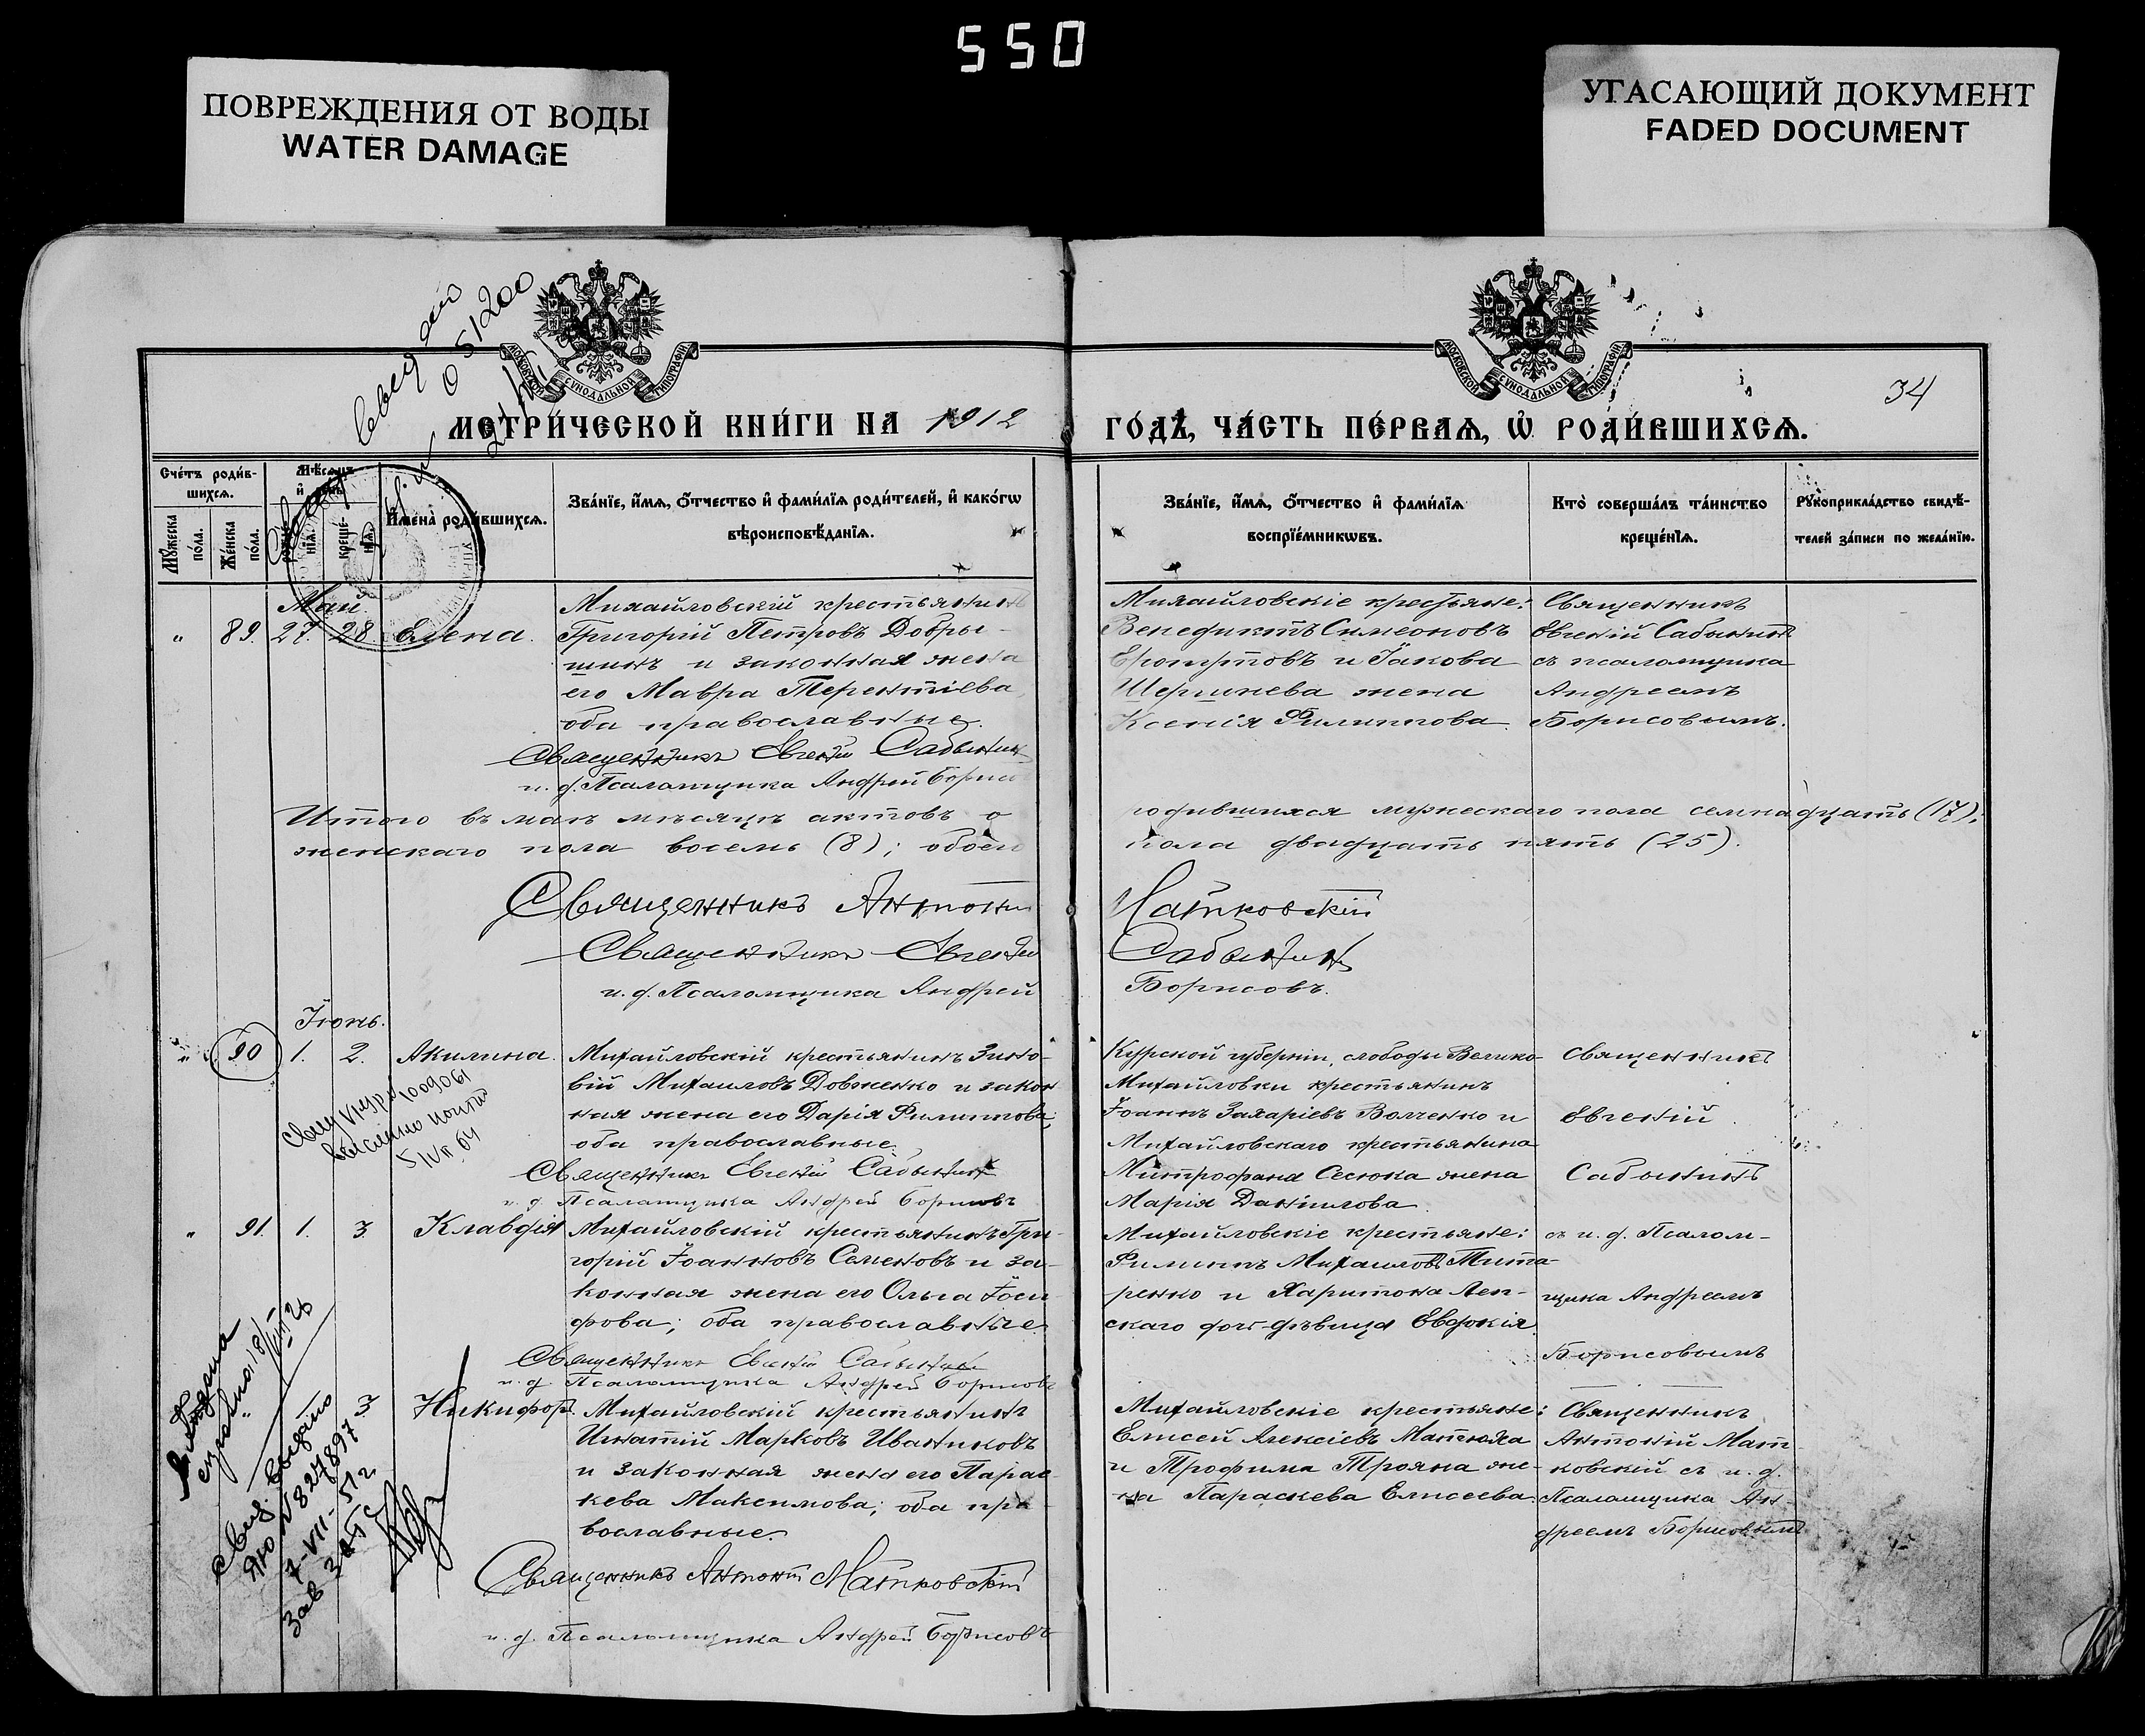 550
ПОВРЕЖДЕНИЯ ОТ ВОДЫ
WATER DAMAGE
УГАСАЮЩИЙ ДОКУМЕНТ
FADED DOCUMENT
34
МЕТРИ́ЧЕСКОЙ КНИ́ГИ НА 1912
ГО́ДЪ, ЧА́СТЬ ПЕ́РВАѦ, Ѡ҆ РОДИ́ВШИХСѦ.
Сче́тъ роди́в-
шихсѧ.
Мꙋ́жеска по́ла.
Же́нска по́ла.
Мѣ́сѧцъ
И҆мена̀ роди́вшихсѧ.
Зва́нїе, и҆́мѧ, ѻ҆́тчество и҆ фами́лїѧ роди́телей, и҆ како́гѡ
вѣроисповѣ́данїѧ.
Зва́нїе, и҆́мѧ, ѻ҆́тчество и҆ фами́лїѧ
воспрїе́мникѡвъ.
Кто̀ соверша́лъ та́инство
креще́нїѧ.
Рꙋкоприкла́дство свидѣ́-
телей за́писи по жела́нїю.
Май.
" 89. 27. 28. Елена.
Михайловскій крестьянинъ
Григорій Петровъ Добры-
шинъ и законная жена
его Мавра Терентіева,
оба православные.
Священникъ Евгеній Сабынинъ
и. д. Псаломщика Андрей Борисовъ
Михайловскіе крестьяне:
Венедиктъ Симеоновъ
и Іакова
жена
Ксенія Филиппова.
Священникъ
Евгеній Сабынинъ
съ псаломщика
Андреемъ
Борисовымъ.
Итого въ маѣ мѣсяцѣ актовъ о родившихся мужескаго пола семнадцать (17);
женскаго пола восемь (8); обоего пола двадцать пять (25).
Священникъ Антоній Матковскій
Священникъ Евгеній Сабынинъ
и. д. Псаломщика Андрей Борисовъ.
Іюнь.
" 90 1. 2. Акилина.
Михайловскій крестьянинъ Зино-
вій Михаиловъ Довженко и закон
ная жена его Дарія Филиппова;
оба православные.
Священникъ Евгеній Сабынинъ
и. д. Псаломщика Андрей Борисовъ
Курской губерніи, слободы Велико-
Михайловки крестьянинъ
Іоаннъ Захаріевъ Волченко и
Михайловскаго крестьянина
Митрофана Сесюка жена
Марія Даніилова.
Священникъ
Евгеній
Сабынинъ
" 91. 1. 3. Клавдія
Михайловскій крестьянинъ Гри-
горій Іоанновъ Семеновъ и за-
конная жена его Ольга Іоси-
фова; оба православные.
Священникъ Евгеній Сабынинъ
и. д. Псаломщика Андрей Борисовъ
Михайловскіе крестьяне:
Филиппъ Михаиловъ Тита-
ренко и Харитона Леп-
скаго дочь дѣвица Евдокія.
съ и. д. Псалом-
щика Андреемъ
Борисовымъ
3. Никифоръ.
Михайловскій крестьянинъ
Игнатій Марковъ Иваниковъ
и законная жена его Парас
кева Максимова; оба пра-
вославные.
Священникъ Антоній Матковскій
и. д. Псаломщика Андрей Борисовъ
Михайловскіе крестьяне:
Елисей Алексіевъ Матюха
и Трофима Трояна же-
на Параскева Елисеева.
Священникъ
Антоній Мат-
ковскій съ и. д.
Псаломщика Ан-
дреемъ Борисовымъ
Свид. выдано
ЯЮ N 827897
7-VII-51 г
Зав ЗАГС